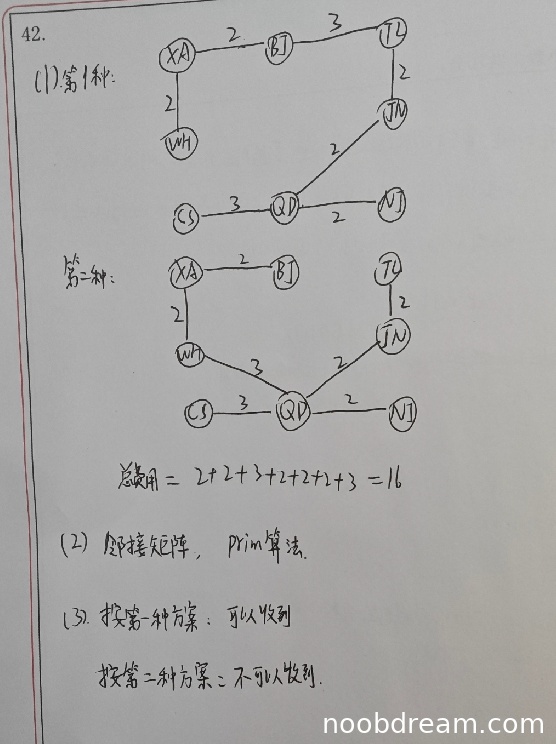 42.
(1).第1种:
XA 2 BJ 3 TL
2 2
WH JN
2
CS 3 QD 2 NJ
第二种:
XA 2 BJ TL
2 2
WH JN
3 2
CS 3 QD 2 NJ
总费用 = 2+2+3+2+2+2+3 =16
(2) 邻接矩阵, prim算法.
(3). 按第一种方案: 可以收到
按第二种方案: 不可以收到.
noobdream.com